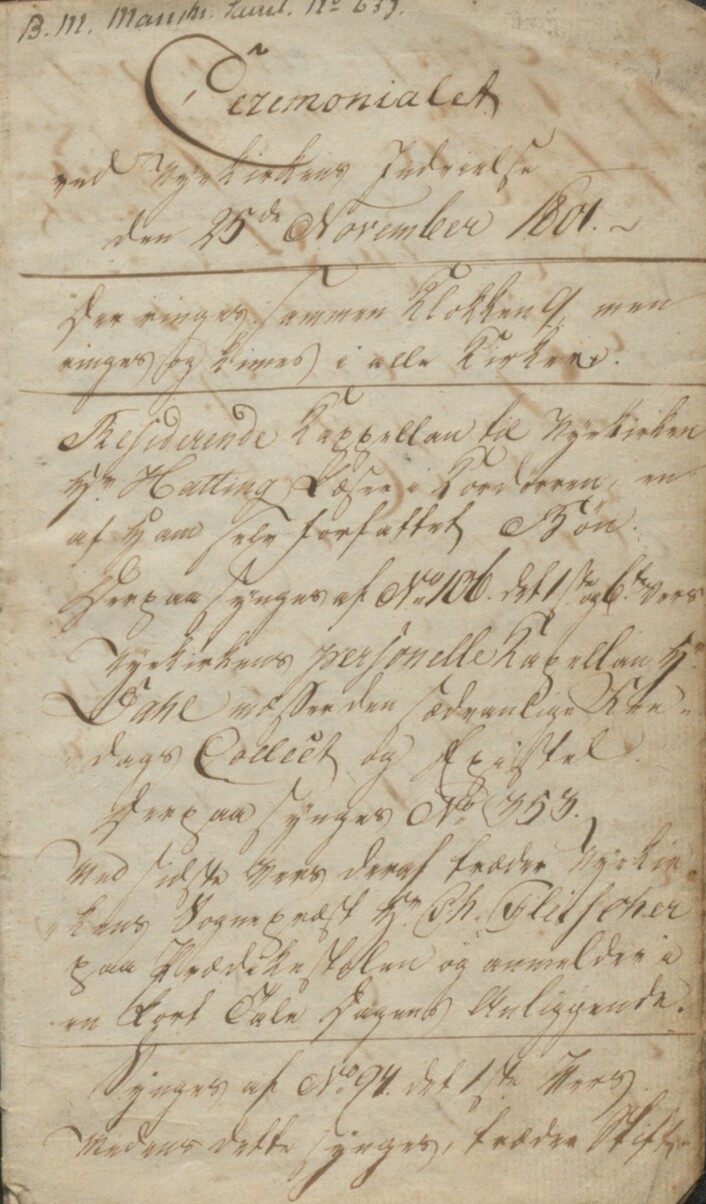 B. M. Manskr. Saml. No 639.
Ceremonialet
ved Nykirkens Indvielse
den 25de November 1801.
Der ringes sammen Klokken 9, men
ringes og kimes i alle Kirker.
Residerende Kappellan til Nykirken
Hr Hatting Læser i Kordørren, en
af Ham selv forfattet Bøn.
Derpaa synges af No 106. det 1ste og 6te Vers
Nykirkens personelle Kapellan Hr.
Dahl messer den sædvanlige Bee-
dags Collect og Epistel.
Derpaa synges No 353.
Med sidste Vers deraf træder Nykir-
kens Sognepræst Hr Ch. Flitscher
paa Prædikestolen og anmelder i
en kort Tale Dagens Anliggende.
Synges af No 94. det 1ste Vers
Medens dette synges, træder Stift-